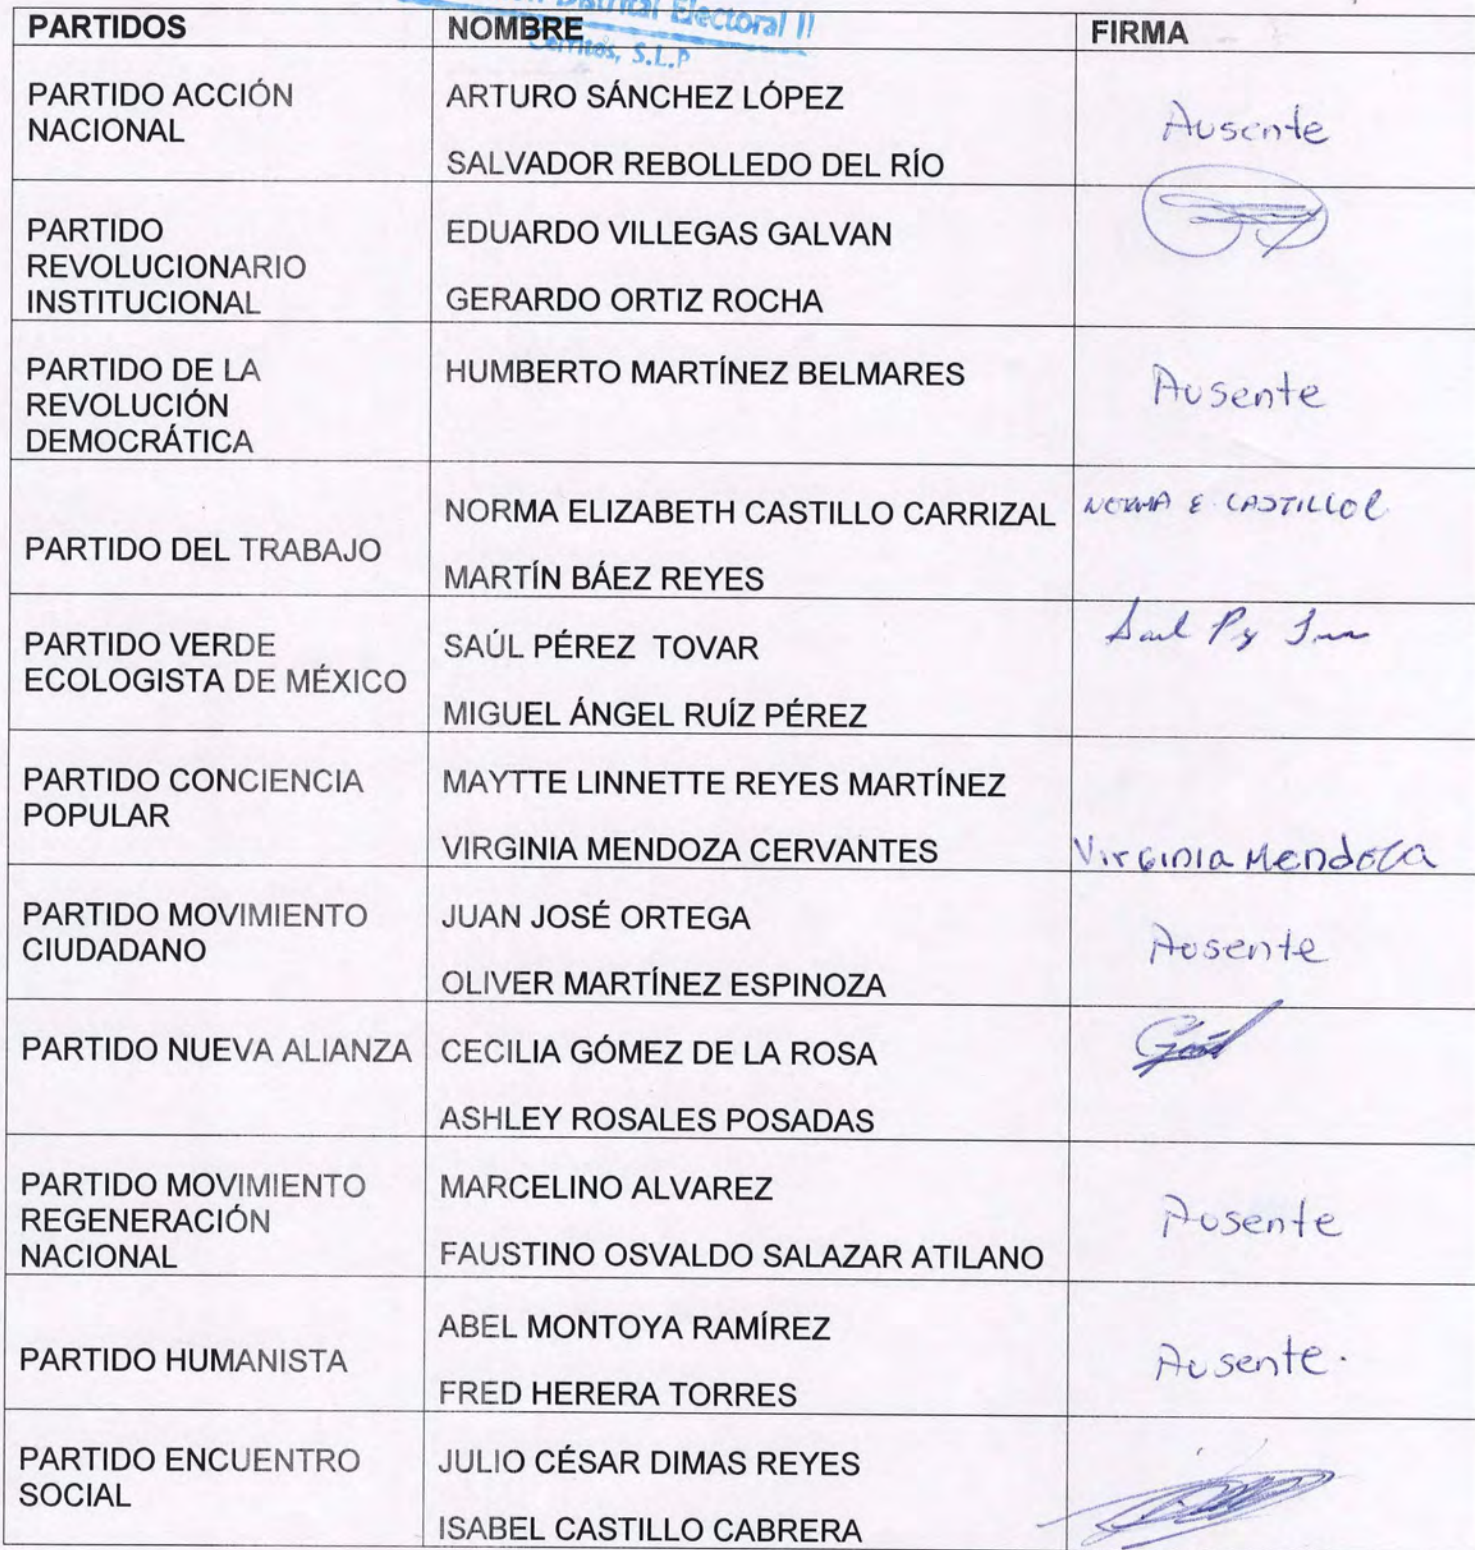 Distrital Electoral II
Cerritos, S.L.P
PARTIDOS NOMBRE FIRMA
PARTIDO ACCIÓN
NACIONAL
ARTURO SÁNCHEZ LÓPEZ
SALVADOR REBOLLEDO DEL RÍO
Ausente
PARTIDO
REVOLUCIONARIO
INSTITUCIONAL
EDUARDO VILLEGAS GALVAN
GERARDO ORTIZ ROCHA
PARTIDO DE LA
REVOLUCIÓN
DEMOCRÁTICA
HUMBERTO MARTÍNEZ BELMARES
Ausente
PARTIDO DEL TRABAJO
NORMA ELIZABETH CASTILLO CARRIZAL
MARTÍN BÁEZ REYES
NORMA E. CASTILLO C
PARTIDO VERDE
ECOLOGISTA DE MÉXICO
SAÚL PÉREZ TOVAR
MIGUEL ÁNGEL RUÍZ PÉREZ
PARTIDO CONCIENCIA
POPULAR
MAYTTE LINNETTE REYES MARTÍNEZ
VIRGINIA MENDOZA CERVANTES
Virginia Mendoza
PARTIDO MOVIMIENTO
CIUDADANO
JUAN JOSÉ ORTEGA
OLIVER MARTÍNEZ ESPINOZA
Ausente
PARTIDO NUEVA ALIANZA
CECILIA GÓMEZ DE LA ROSA
ASHLEY ROSALES POSADAS
PARTIDO MOVIMIENTO
REGENERACIÓN
NACIONAL
MARCELINO ALVAREZ
FAUSTINO OSVALDO SALAZAR ATILANO
Ausente
PARTIDO HUMANISTA
ABEL MONTOYA RAMÍREZ
FRED HERERA TORRES
Ausente.
PARTIDO ENCUENTRO
SOCIAL
JULIO CÉSAR DIMAS REYES
ISABEL CASTILLO CABRERA